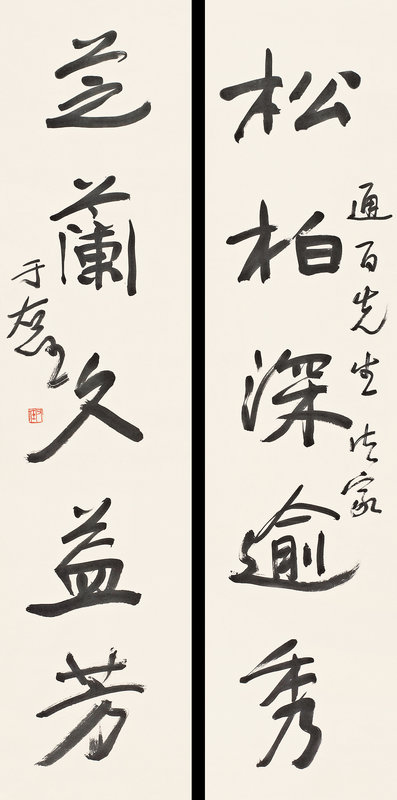 松柏深逾秀
通百先生法家
芝蘭久益芳
于右任